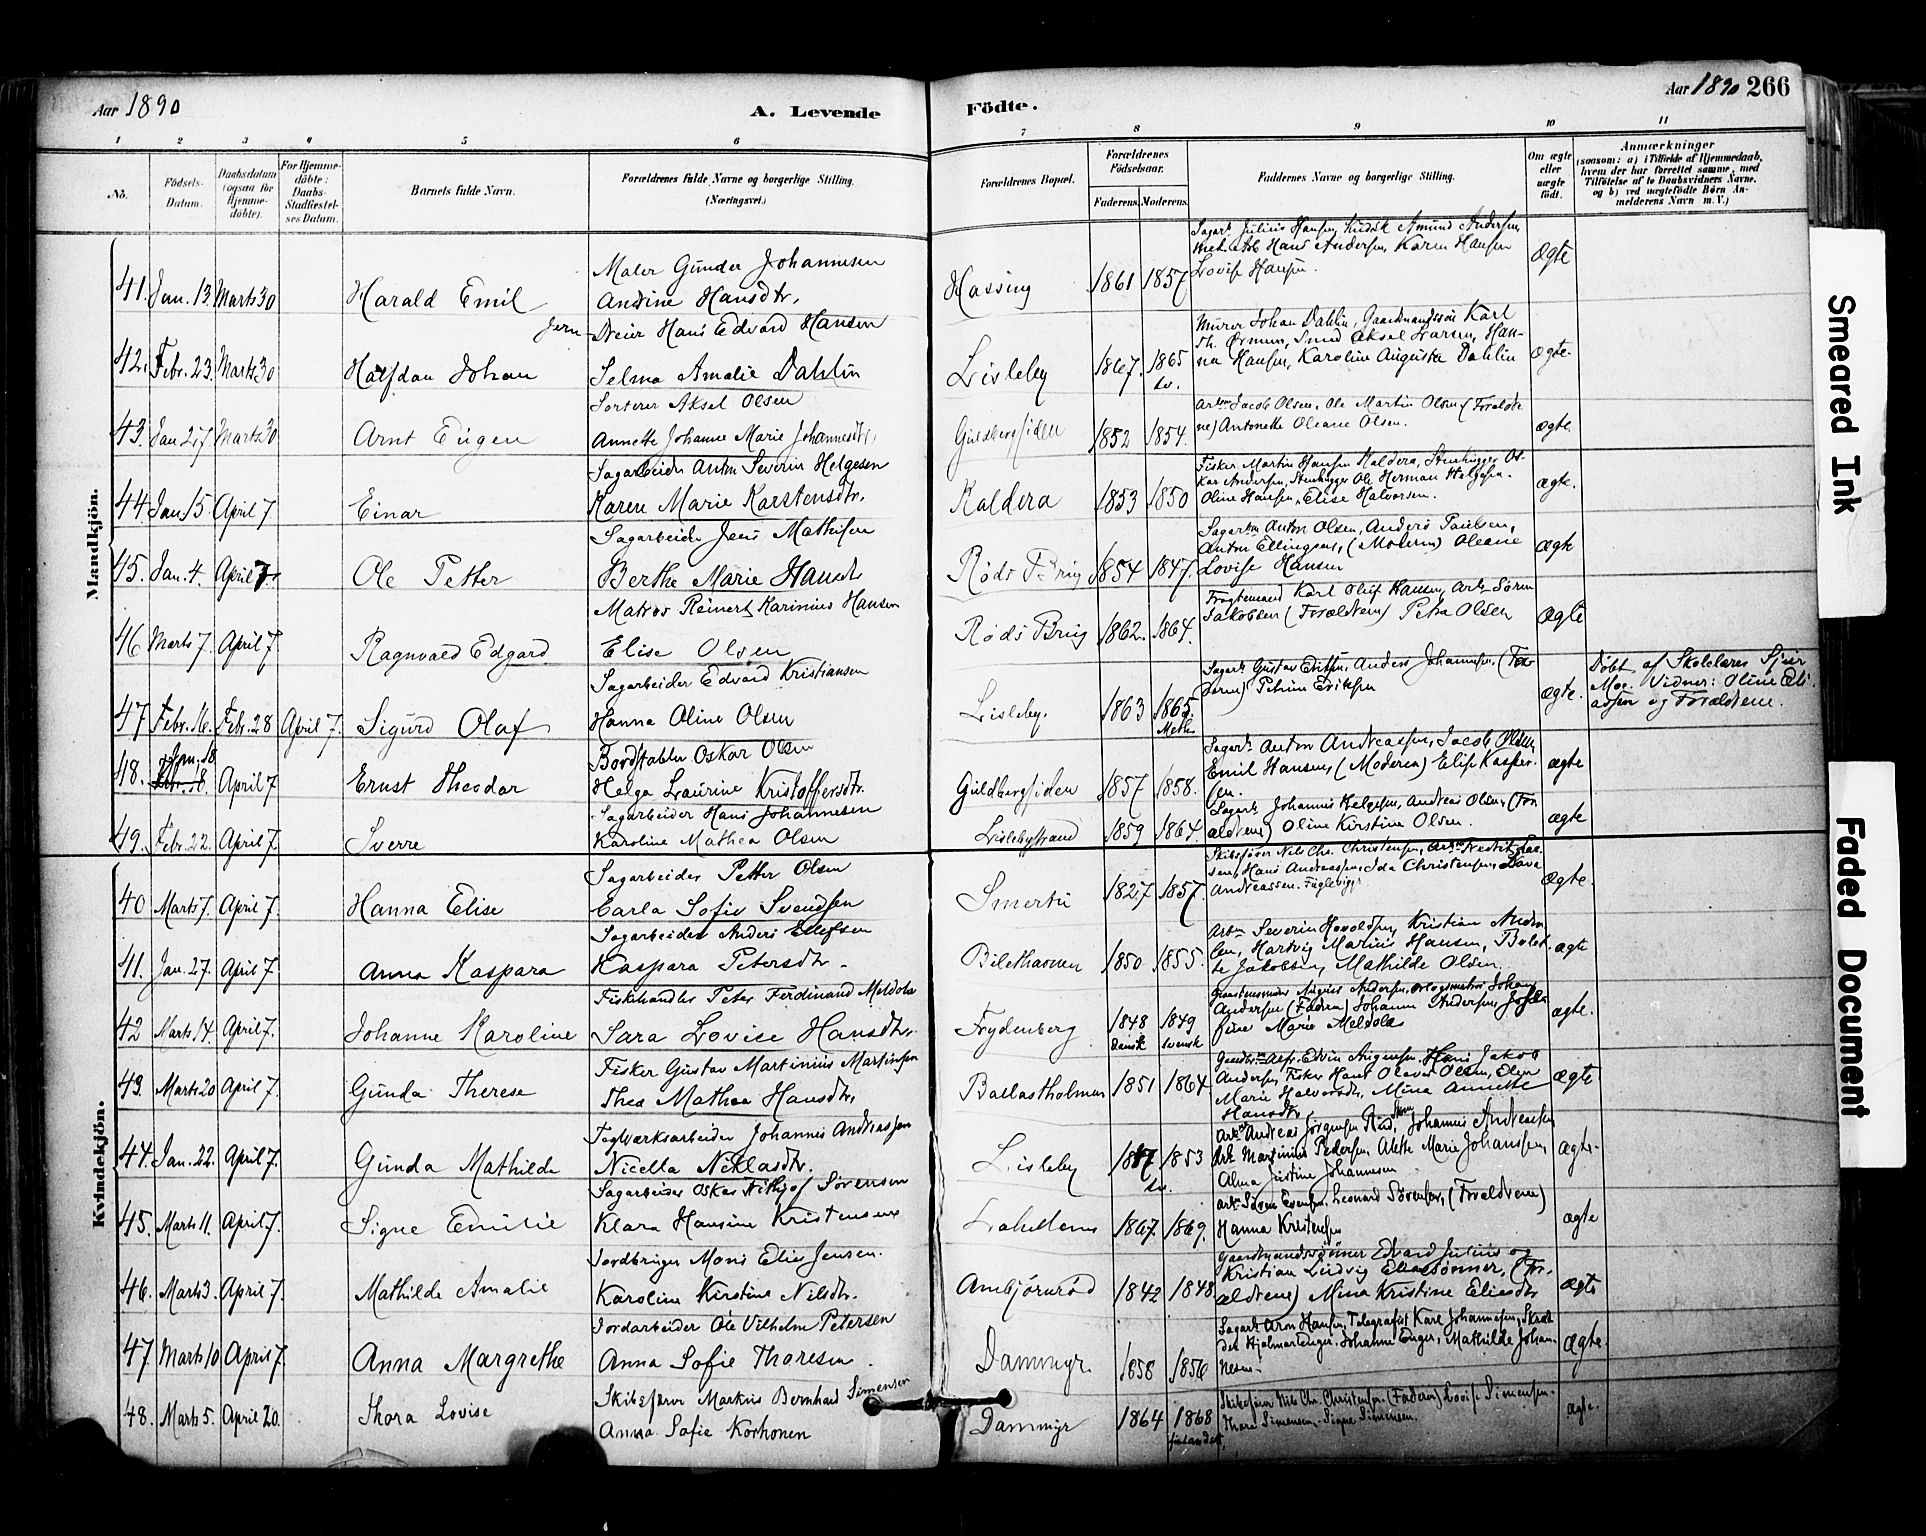 Aar 1890
A. Levende
Födte.
Aar 1890 266
1 2 3 4 5 6 7 8 9 10 11
No.
Födsels-Datum.
Daabsdatum (ogsaa for Hjemme-döbte).
For Hjemme-döbte: Daabs-Stadfæstel-ses Datum.
Barnets fulde Navn.
Forældrenes fulde Navne og borgerlige Stilling. (Næringsvei.)
Forældrenes Bopæl.
Forældrenes Födselsaar.
Faderens. Moderens.
Faddernes Navne og borgerlige Stilling.
Om ægte eller uægte födt.
Anmærkninger
(saasom: a) i Tilfælde af Hjemmedaab, hvem der har forrettet samme, med Tilföielse af to Daabsvidners Navne, og b) ved uægtefödte Børn An-melderens Navn m. V.)
Mandkjön.
41. Jan. 13. Marts 30 Harald Emil
Maler Gunder Johannesen
Andrine Hansdtr.
Hassing 1861 1857
Julius Hansen, Kudsk Amund Andersen,
Hans Andersen, Karen Hansen
Lovise Hansen.
Ægte
42. Febr. 23. Marts 30 Halfdan Johan
Jern-Dreier Hans Edvard Hansen
Selma Amalie Dahlin
Lisleby 1867. 1865 sv.
Murer Johan Dahlin, Gaardmandssøn Karl
Th. Ørmen, Smed Aksel Larsen, Han-
na Hansen, Karoline Augusta Dahlin
Ægte.
43. Jan 27 Marts 30 Arnt Eugen
Sorterer Aksel Olsen
Annette Johanne Marie Johannesdtr.
Guldbergsiden 1852 1854.
Jacob Olsen, Ole Martin Olsen (Foræld-
ne) Antonette Oleane Olsen.
ægte
44 Jan 15 April 7 Einar
Sagarbeider Anton Severin Helgesen
Karen Marie Karstensdtr.
Kaldera 1853 1850
Fisker Martin Hansen Kaldera, Stenhugger Os-
kar Andersen, Stenhugger Ole Herman Helgesen.
Oline Hansen, Elise Halvorsen.
ægte.
45. Jan. 4. April 7. Ole Petter
Sagarbeider Jens Mathisen
Berthe Marie Hansdtr
Røds Brug 1854 1847.
Anton Olsen, Anders Paulsen,
Anton Ellingsen, (Moderen) Oleane
Lovise Hansen
Ægte
46 Marts 7. April 7. Ragnvald Edgard
Matros Reinert Karinius Hansen
Elise Olsen
Røds Brug 1862. 1864.
Karl Oluf Hansen, Arb. Søren
Jakobsen (Forældrene) Petra Olsen
Ægte
47 Febr. 16. Febr. 28 April 7. Sigurd Olaf
Sagarbeider Edvard Kristiansen
Hanna Oline Olsen
Lisleby. 1863 1865. Meth.
Sagarb. Gustav Eriksen, Anders Johannesen, (Fa-
deren) Petrine Eriksen
ægte.
Døbt af Skolelærer
Moe. Vidner: Oline
og Forældrene.
48. Jan. 18 Febr. 18. April 7 Ernst Theodor
Bordstabler Oskar Olsen
Helga Laurine Kristoffersdtr.
Guldbergsiden 1857 1858.
Sagarb. Anton Andreassen, Jacob Olsen,
Emil Hansen, (Moderen) Elise Kasper-
sen.
ægte
49. Febr. 22. April 7. Sverre
Sagarbeider Hans Johannesen
Karoline Mathea Olsen
Lislebystrand 1859 1864.
Sagarb. Johannes Helgesen, Andreas Olsen, (For-
ældrene) Oline Kirstine Olsen.
ægte
Kvindekjön.
40 Marts 7. April 7. Hanna Elise
Sagarbeider Petter Olsen
Carla Sofie Svendsen
Smertu 1827 1857.
Skibsfører Nils Chr. Christensen,
sen, Hans Andreassen, Ida Christensen,
Andreassen. Fuglevig
Ægte.
41. Jan. 27. April 7. Anna Kaspara
Sagarbeider Anders Ellefsen
Kaspara Petersdtr.
1850 1855.
Arb. Severin Haraldsen, Kristian Ander-
sen, Hartvig Marius Hansen,
te Jakobsen, Mathilde Olsen.
ægte
42 Marts 14. April 7. Johanne Karoline
Fiskehandler Peter Ferdinand Meldola
Sara Lovise Hansdtr.
Frydenberg 1848 Dansk 1849 svensk
August Andersen, Johans
Andersen (Faderen) Johanne Andersen, Jose-
fine Marie Meldola
ægte.
43. Marts 20 April 7. Gunda Therese
Fisker Gustav Martinius Martinsen
Thea Mathea Hansdtr.
Ballastholmen 1851 1864
Alfr. Edvin Hans Jakob
Andersen, Fisker Hans Olavus Olsen, Elen
Marie Halvorsdtr, Mina Annette
Hansdtr.
ægte
44 Jan. 22. April 7. Gunda Mathilde
Teglværksarbeider Johannes Andreassen
Nicella Niklasdtr.
Lisleby sv. 1853
Andreas Jørgensen Rud, Johannes Andreassen
Arb. Martinius Pedersen, Alette Marie Johansen,
Alma Justine Johannesen
ægte.
45. Marts 11. April 7. Signe Emilie
Sagarbeider Oskar Fithjof Sørensen
Klara Hansine Kristensen
1867. 1869.
Arb. Søren Evensen, Leonard Sørensen, (Forældrene)
Hanna Kristensen
ægte
46. Marts 3. April 7. Mathilde Amalie
Jordbruger Mons Elias Jensen.
Karoline Kirstine Nilsdtr.
Ambjörnröd 1842 1848
Gaardmandssønner Edvard Julius og
Kristian Ludvig Eliassønner, (For-
ældrene) Mina Kristine Eliasdtr
ægte
47. Marts 10 April 7. Anna Margrethe
Jordarbeider Ole Vilhelm Petersen
Anna Sofie Thoresen.
Dammyr. 1858 1856
Sagarb. Aron Hansen, Telegrafist Karl Johannesen, Skræd-
der Hjalmar Enger, Johanne Enger, Mathilde Johan-
nesen.
Ægte.
48. Marts 5. April 20. Thora Lovise
Skibsfører Markus Bernhard Simensen
Anna Sofie Korhonen
Dammyr 1864 1868 finlandsk
Skibsfører Nils Chr. Christensen. (Faderen) Lovise Simensen.
Thora Simensen. Signe Simensen.
ægte.
Smeared Ink
Faded Document